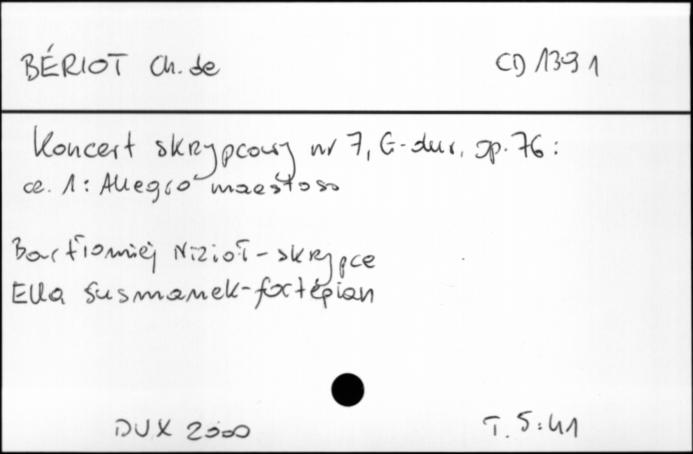 BÉRIOT Ch. de CD 1391
Koncert skrzypcowy nr 7, G-dur, op. 76:
cz. 1: Allegro maestoso
Bartłomiej Nizioł - skrzypce
Ella Susmanek - fortepian
DUX 2000 T. 5:41